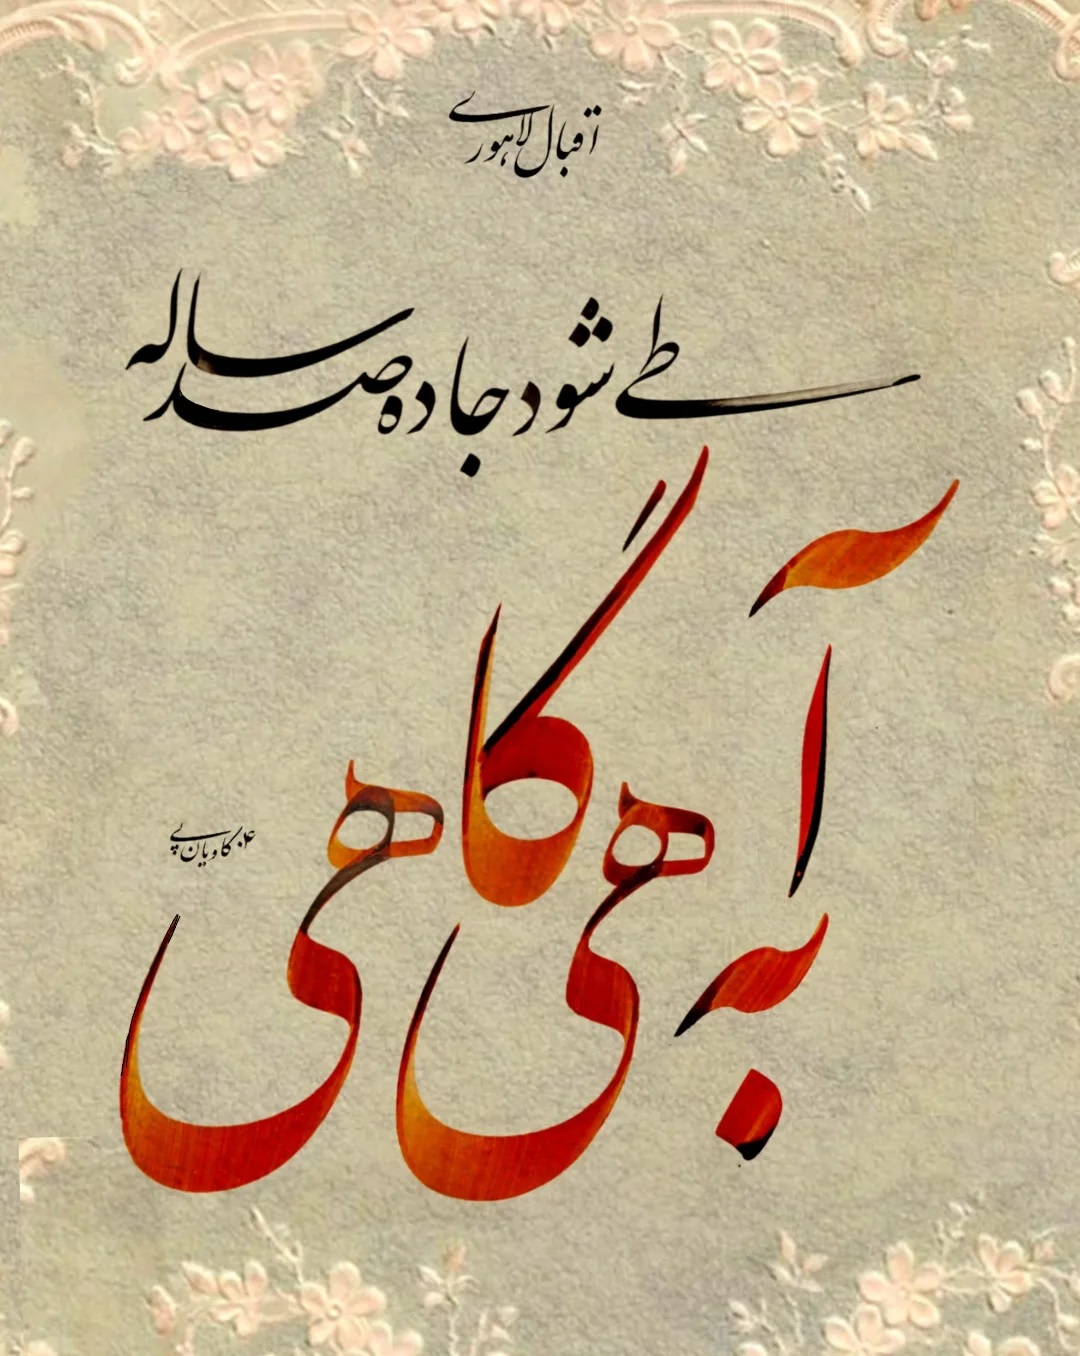 اقبال لاهوری
طی شود جاده صد ساله
به آهی گاهی
۰۴ کاویان پی